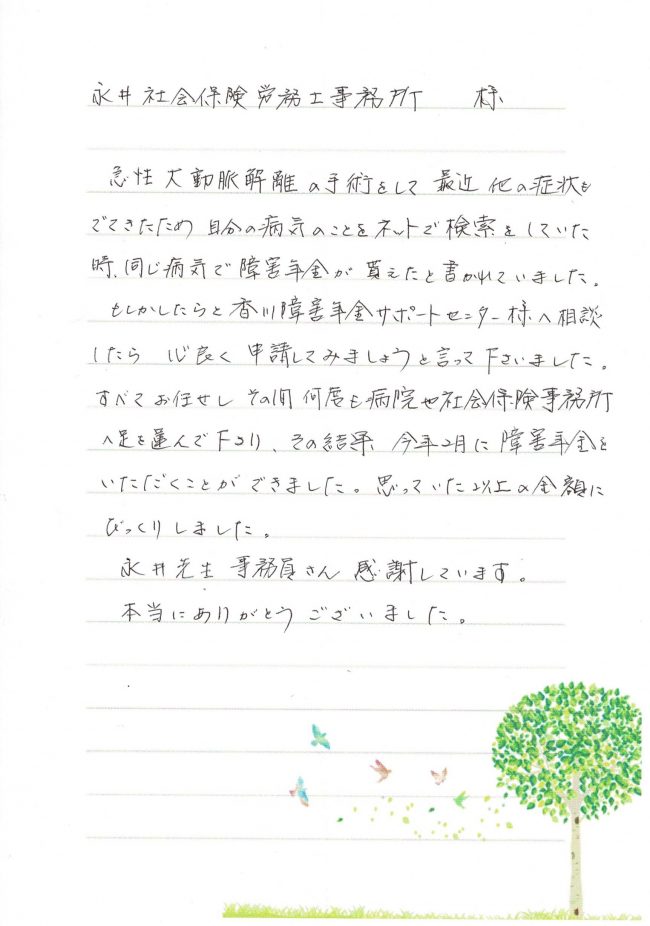 永井社会保険労務士事務所　様
急性大動脈解離の手術をして 最近 他の症状も
でてきたため 自分の病気のことをネットで検索をしていた
時、同じ病気で障害年金が貰えたと書かれていました。
もしかしたらと香川障害年金サポートセンター様へ相談
したら 心良く 申請してみましょうと言って下さいました。
すべてお任せし その間 何度も病院や社会保険事務所
へ足を運んで下さり、その結果 今年2月に障害年金を
いただくことができました。思っていた以上の金額に
びっくりしました。
永井先生 事務員さん 感謝しています。
本当にありがとうございました。